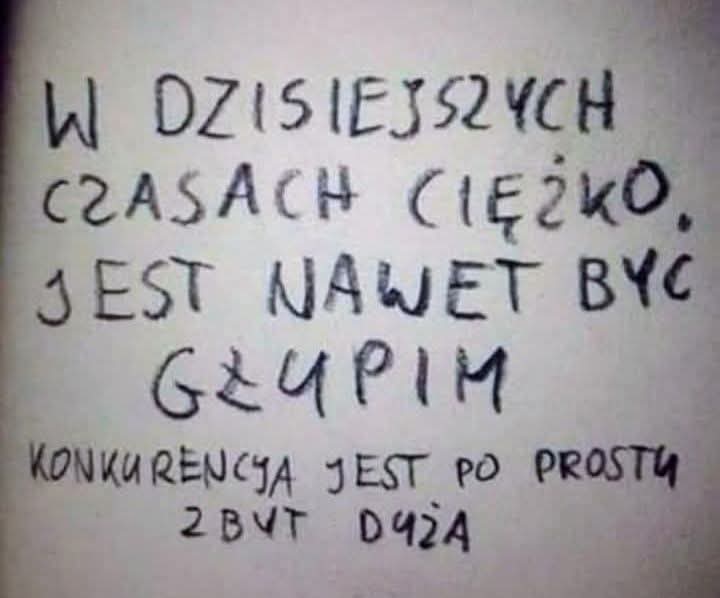 W DZISIEJSZYCH
CZASACH CIĘŻKO.
JEST NAWET BYĆ
GŁUPIM
KONKURENCJA JEST PO PROSTU
ZBYT DUŻA